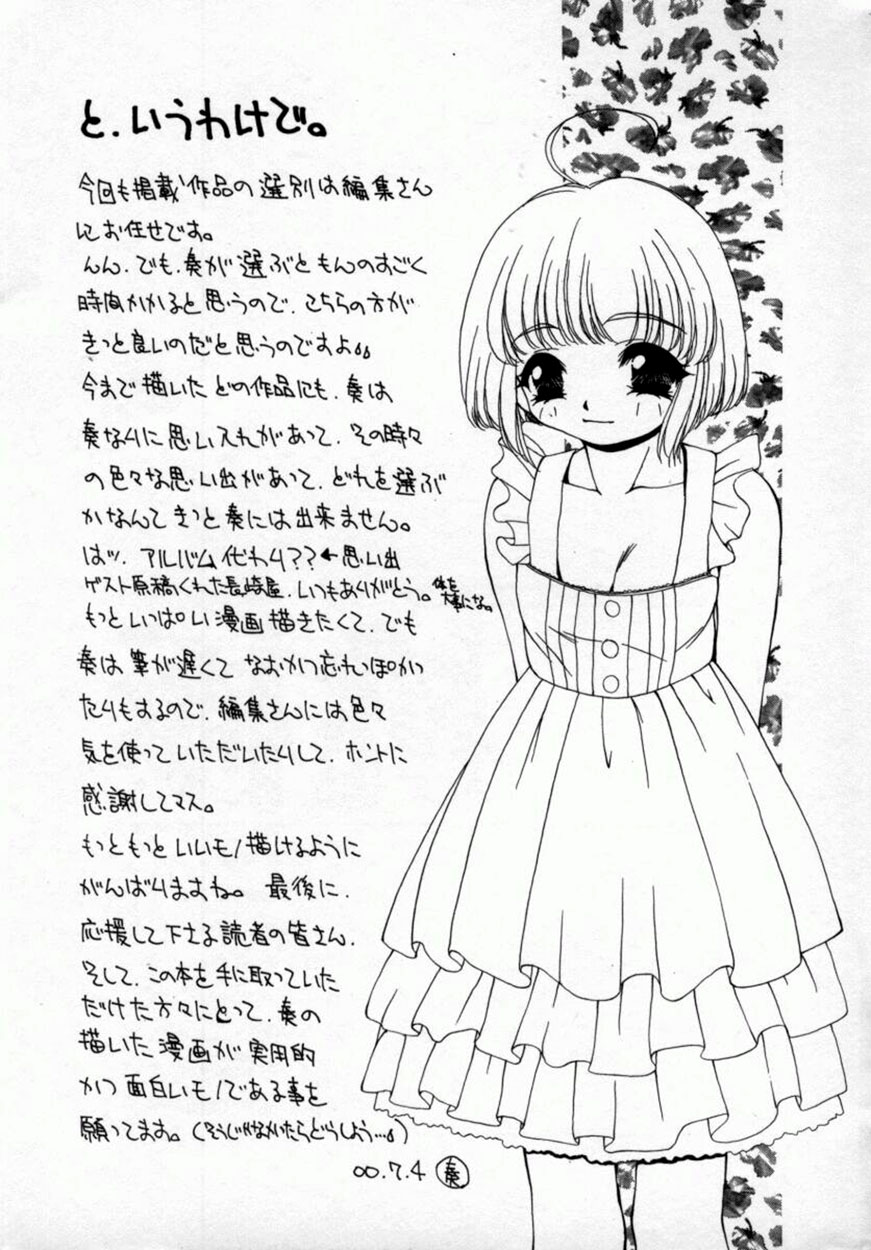 と、いうわけで。
今回も掲載作品の選別は編集さん
にお任せです。
んん、でも、奏が選ぶともんのすごく
時間かかると思うので、こちらの方が
きっと良いのだと思うのですよ。。
今まで描いたどの作品にも、奏は
奏なりに思い入れがあって、その時々
の色々な思い出があって、どれを選ぶ
かなんてきっと奏には出来ません。
はッ、アルバム代わり??←思い出
ゲスト原稿くれた長崎屋、いつもありがとう。体を大事にな。
もっといっぱい漫画描きたくて、でも
奏は筆が遅くてなおかつ忘れっぽかっ
たりもするので、編集さんには色々
気を使っていただいたりして、ホントに
感謝してマス。
もっともっといいモノ描けるように
がんばりますね。最後に、
応援して下さる読者の皆さん、
そして、この本を手に取っていた
だけた方々にとって、奏の
描いた漫画が実用的
かつ面白いモノである事を
願ってます。(そうじゃなかったらどうしよう…。)
00.7.4 奏